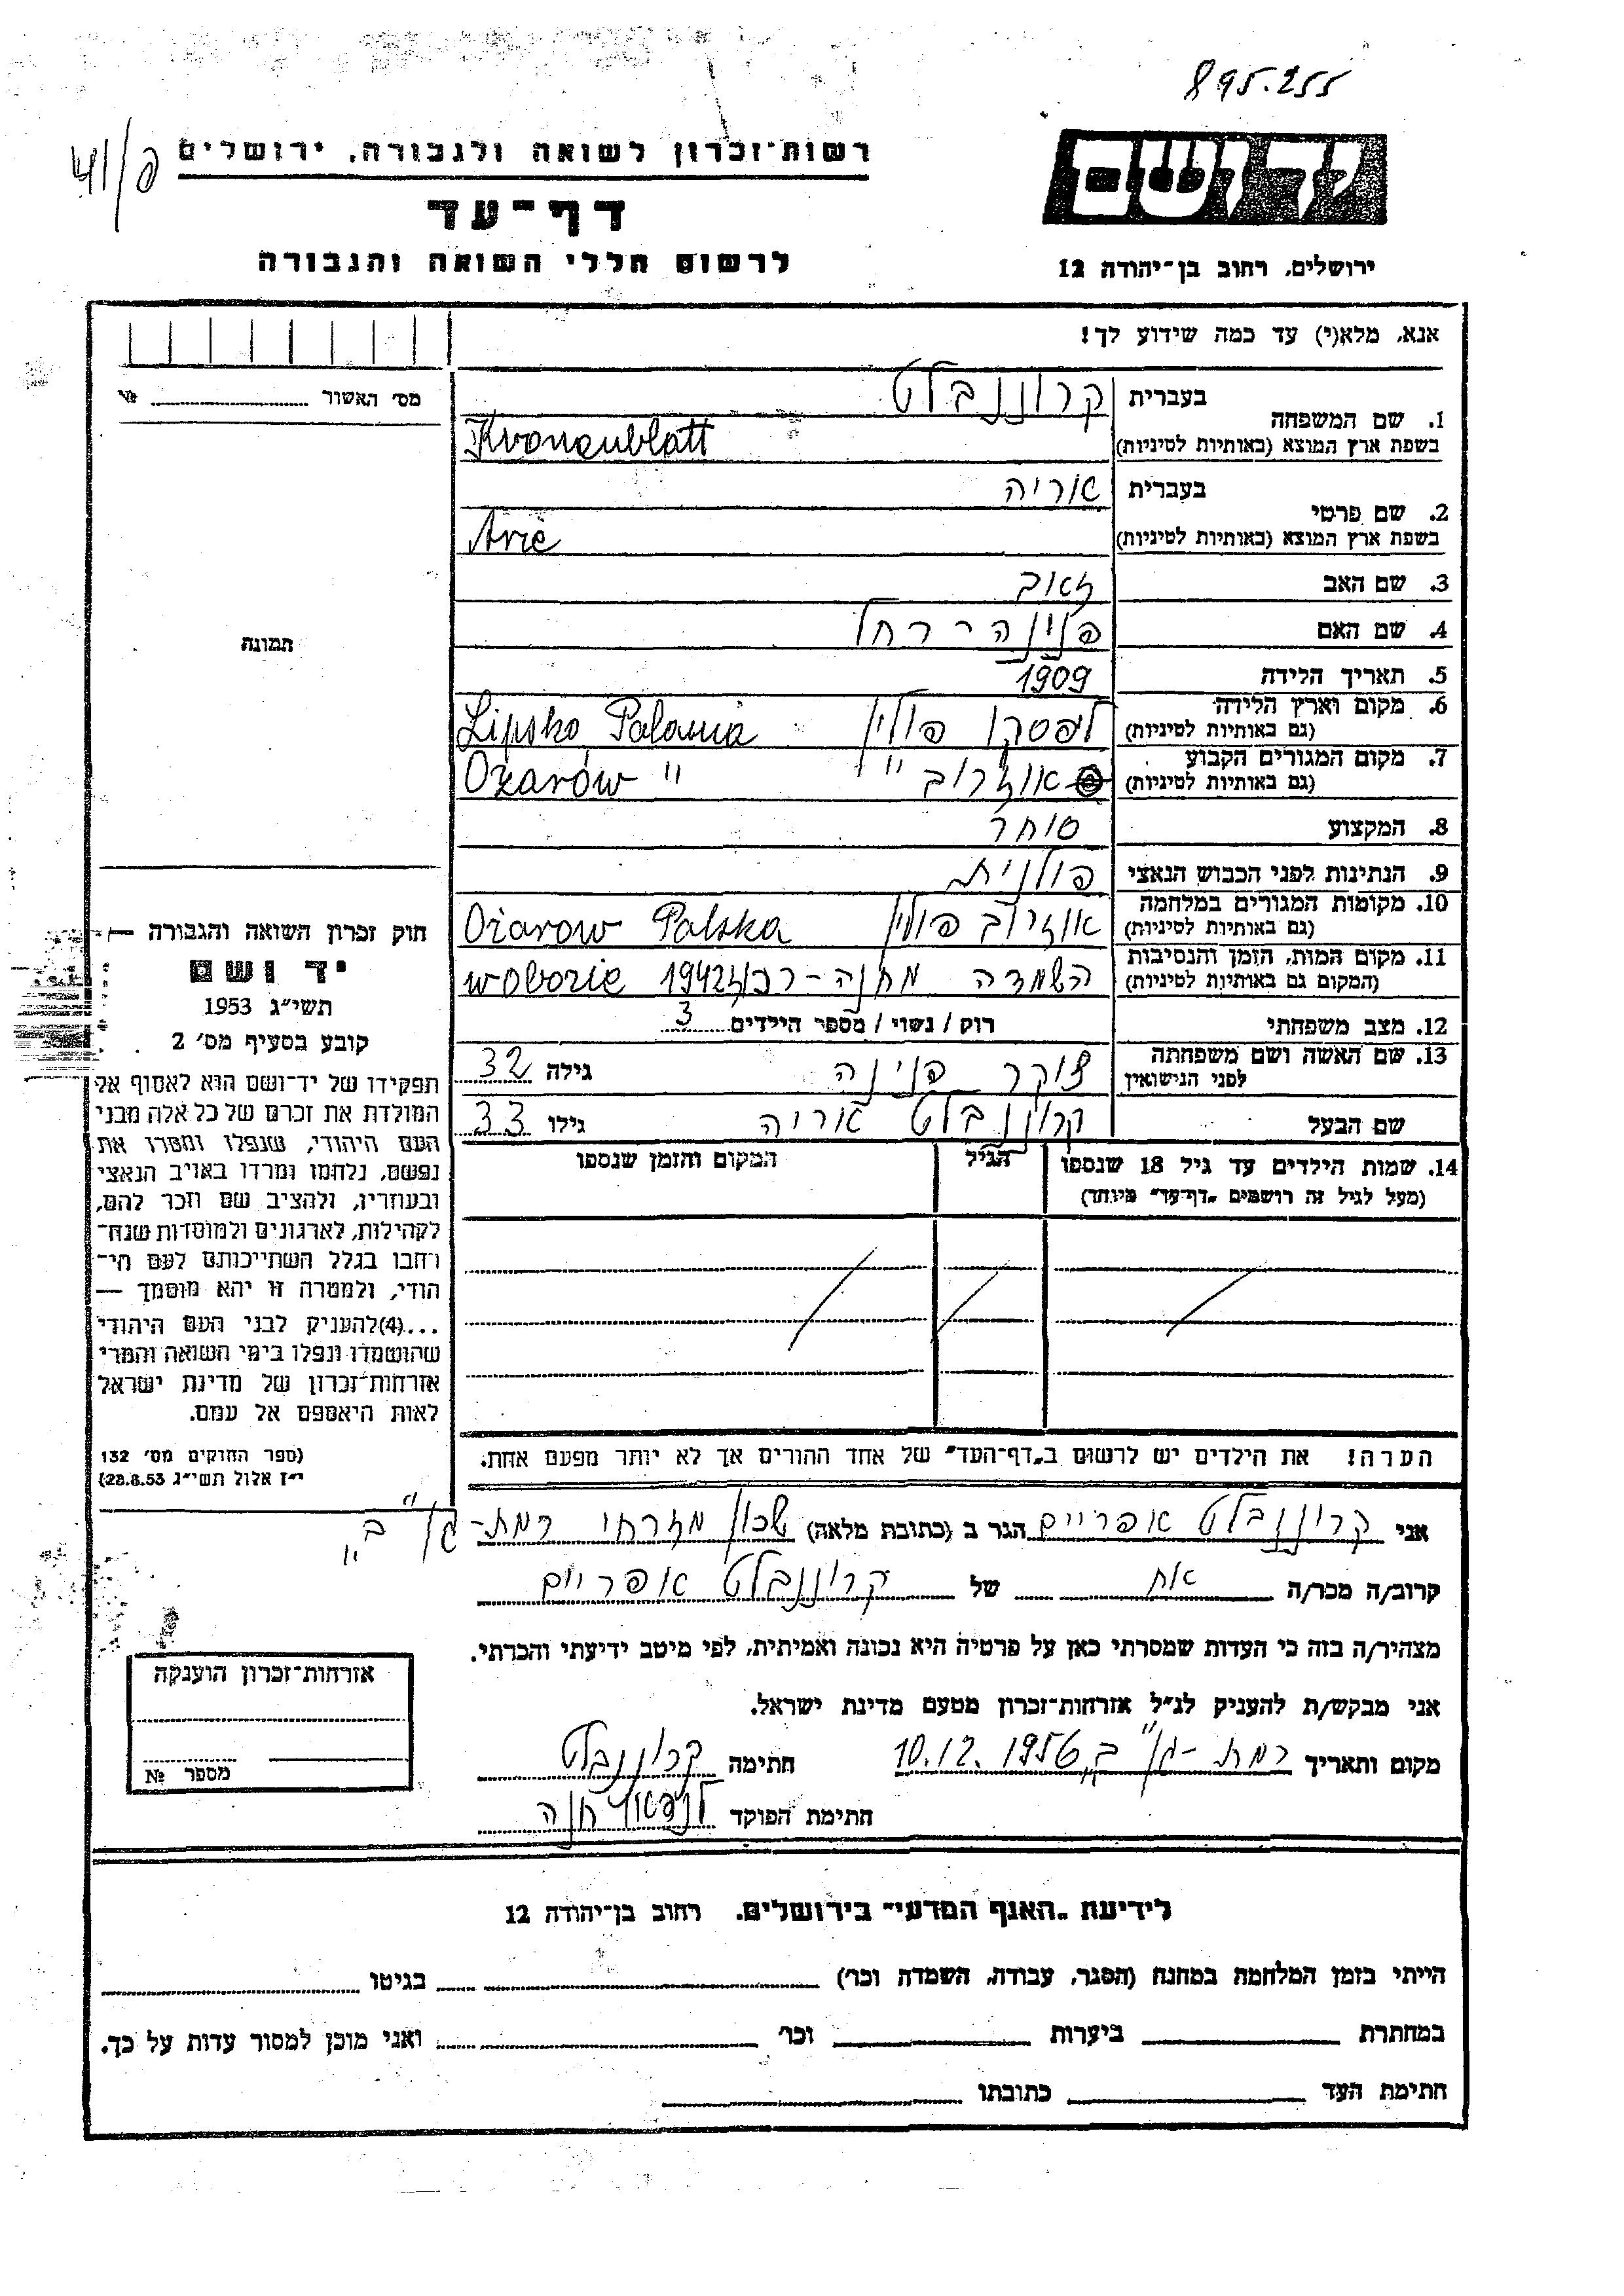 895.255
41/פ
רשות־זכרון לשואה ולגבורה, ירושלים
יד ושם
דף־עד
לרשום חללי השואה והגבורה
ירושלים, רחוב בן־יהודה 12
אנא, מלא(י) עד כמה שידוע לך!
מס׳ האשור № 
1. שם המשפחה בעברית קרוננבלט
בשפת ארץ המוצא (באותיות לטיניות) Kronenblatt
2. שם פרטי בעברית אריה
בשפת ארץ המוצא (באותיות לטיניות) Arie
3. שם האב זאב
4. שם האם פנינה־רחל
תמונה
5. תאריך הלידה 1909
6. מקום וארץ הלידה (גם באותיות לטיניות) לפסקו פולין Lipsko Polania
7. מקום המגורים הקבוע (גם באותיות לטיניות) אוזרוב " Ożarów "
8. המקצוע סוחר
9. הנתינות לפני הכבוש הנאצי פולנית
10. מקומות המגורים במלחמה (גם באותיות לטיניות) אוזרוב פולין Ożarow Polska
11. מקום המות, הזמן והנסיבות (המקום גם באותיות לטיניות) השמדה מחנה־ 1942 w obozie
12. מצב משפחתי רוק / נשוי / מספר הילדים 3
13. שם האשה ושם משפחתה לפני הנישואין צוקר פנינה גילה 32
שם הבעל קרונןבלט אריה גילו 33
14. שמות הילדים עד גיל 18 שנספו הגיל המקום והזמן שנספו
(מעל לגיל זה רושמים „דף־עד" מיוחד)
חוק זכרון השואה והגבורה —
יד ושם
תשי״ג 1953
קובע בסעיף מס׳ 2
תפקידו של יד־ושם הוא לאסוף אל
המולדת את זכרם של כל אלה מבני
העם היהודי, שנפלו ומסרו את
נפשם, נלחמו ומרדו באויב הנאצי
ובעוזריו, ולהציב שם וזכר להם,
לקהילות, לארגונים ולמוסדות שנח־
רחבו בגלל השתייכותם לעם הי־
הודי, ולמטרה זו יהא מוסמך —
...(4)להעניק לבני העם היהודי
שהושמדו ונפלו בימי השואה והמרי
אזרחות־זכרון של מדינת ישראל
לאות היאספם אל עמם.
(ספר החוקים מס׳ 132
י״ז אלול תשי״ג 28.8.53)
הערה! את הילדים יש לרשום ב„דף־העד" של אחד ההורים אך לא יותר מפעם אחת.
אני קרוננבלט אפריים הגר ב (כתובת מלאה) שכון מזרחי רמת־גן ב"
קרוב/ה מכר/ה אח של קרוננבלט אפריים
מצהיר/ה בזה כי העדות שמסרתי כאן על פרטיה היא נכונה ואמיתית, לפי מיטב ידיעתי והכרתי.
אני מבקש/ת להעניק לנ״ל אזרחות־זכרון מטעם מדינת ישראל.
מקום ותאריך רמת־גן ב" 10.12.1956 חתימה קרונןבלט
חתימת הפוקד חנה
אזרחות־זכרון הוענקה
מספר №
לידיעת „האגף המדעי" בירושלים, רחוב בן־יהודה 12
הייתי בזמן המלחמה במחנה (הסגר, עבודה, השמדה וכר׳) בגיטו
במחתרת ביערות וכר׳ ואני מוכן למסור עדות על כך.
חתימת העד כתובתו